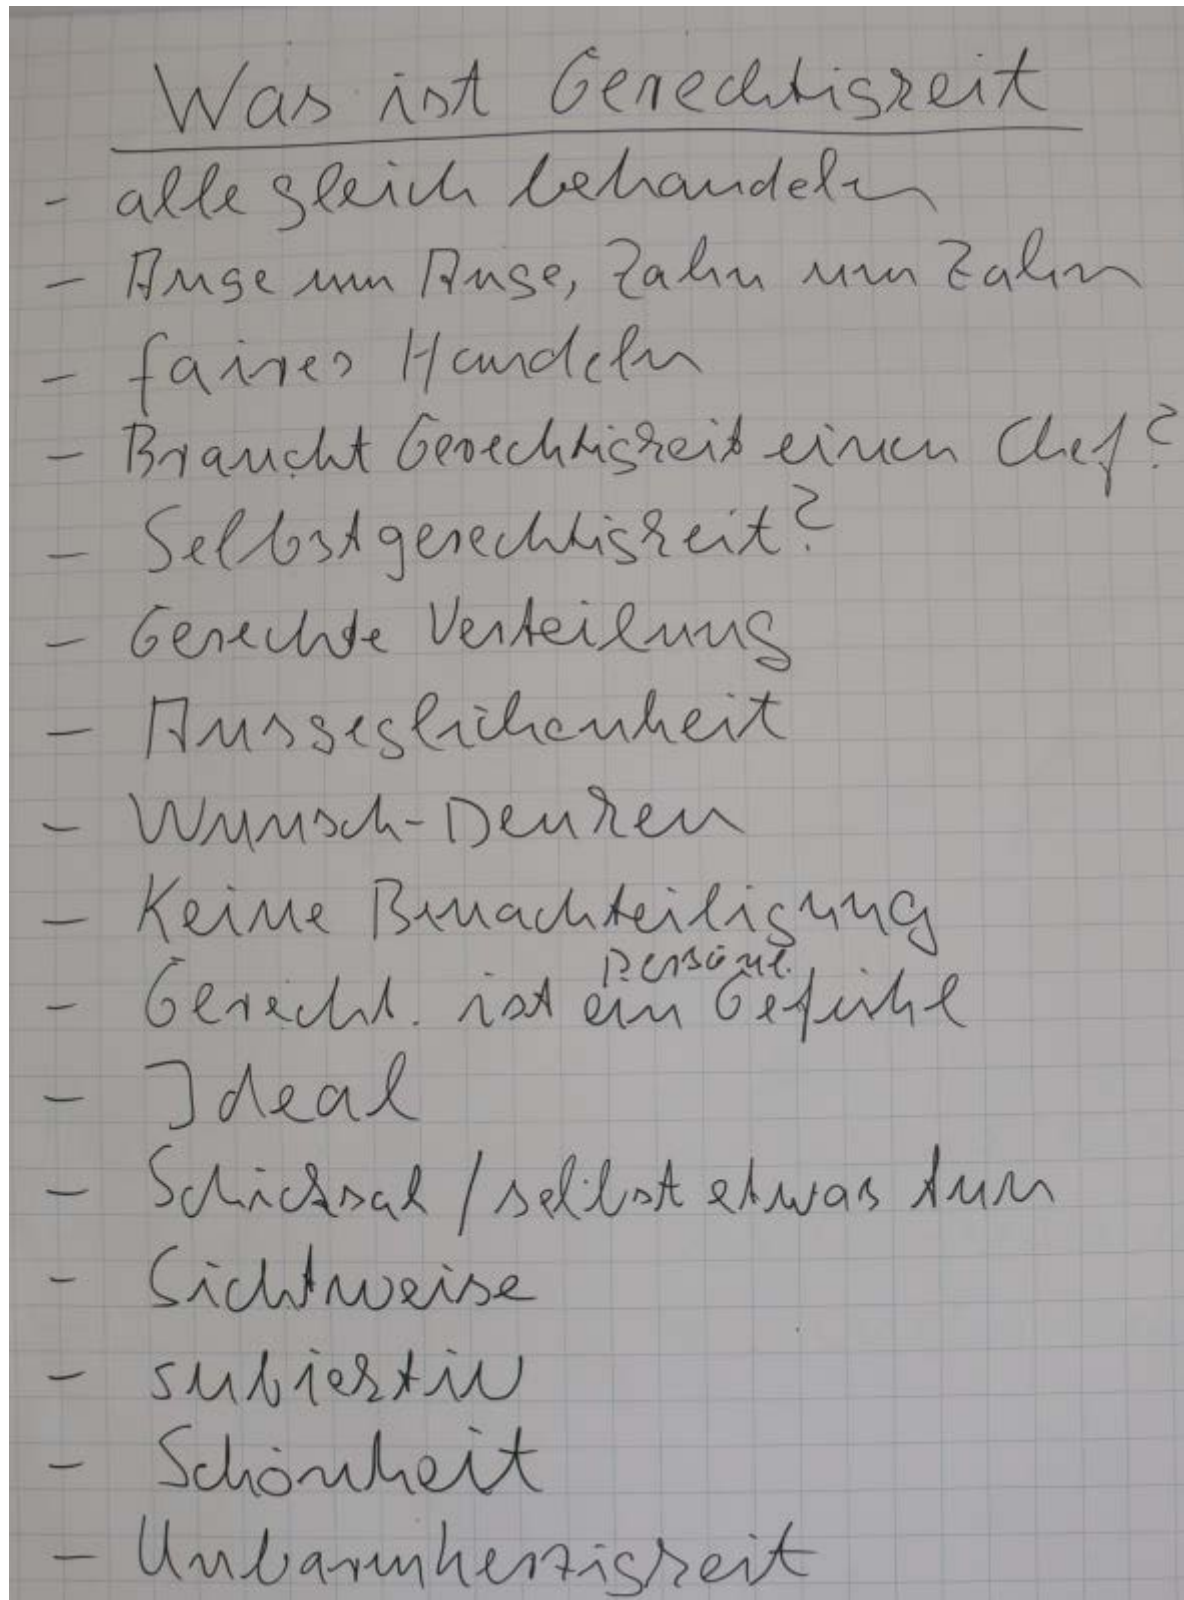 Was ist Gerechtigkeit
- alle gleich behandeln
- Auge um Auge, Zahn um Zahn
- faires Handeln
- Braucht Gerechtigkeit einen Chef?
- Selbstgerechtigkeit?
- Gerechte Verteilung
- Ausgeglichenheit
- Wunsch-Denken
- Keine Benachteiligung
persönl.
- Gerecht. ist ein Gefühl
- Ideal
- Schicksal / selbst etwas tun
- Sichtweise
- subjektiv
- Schönheit
- Unbarmherzigkeit